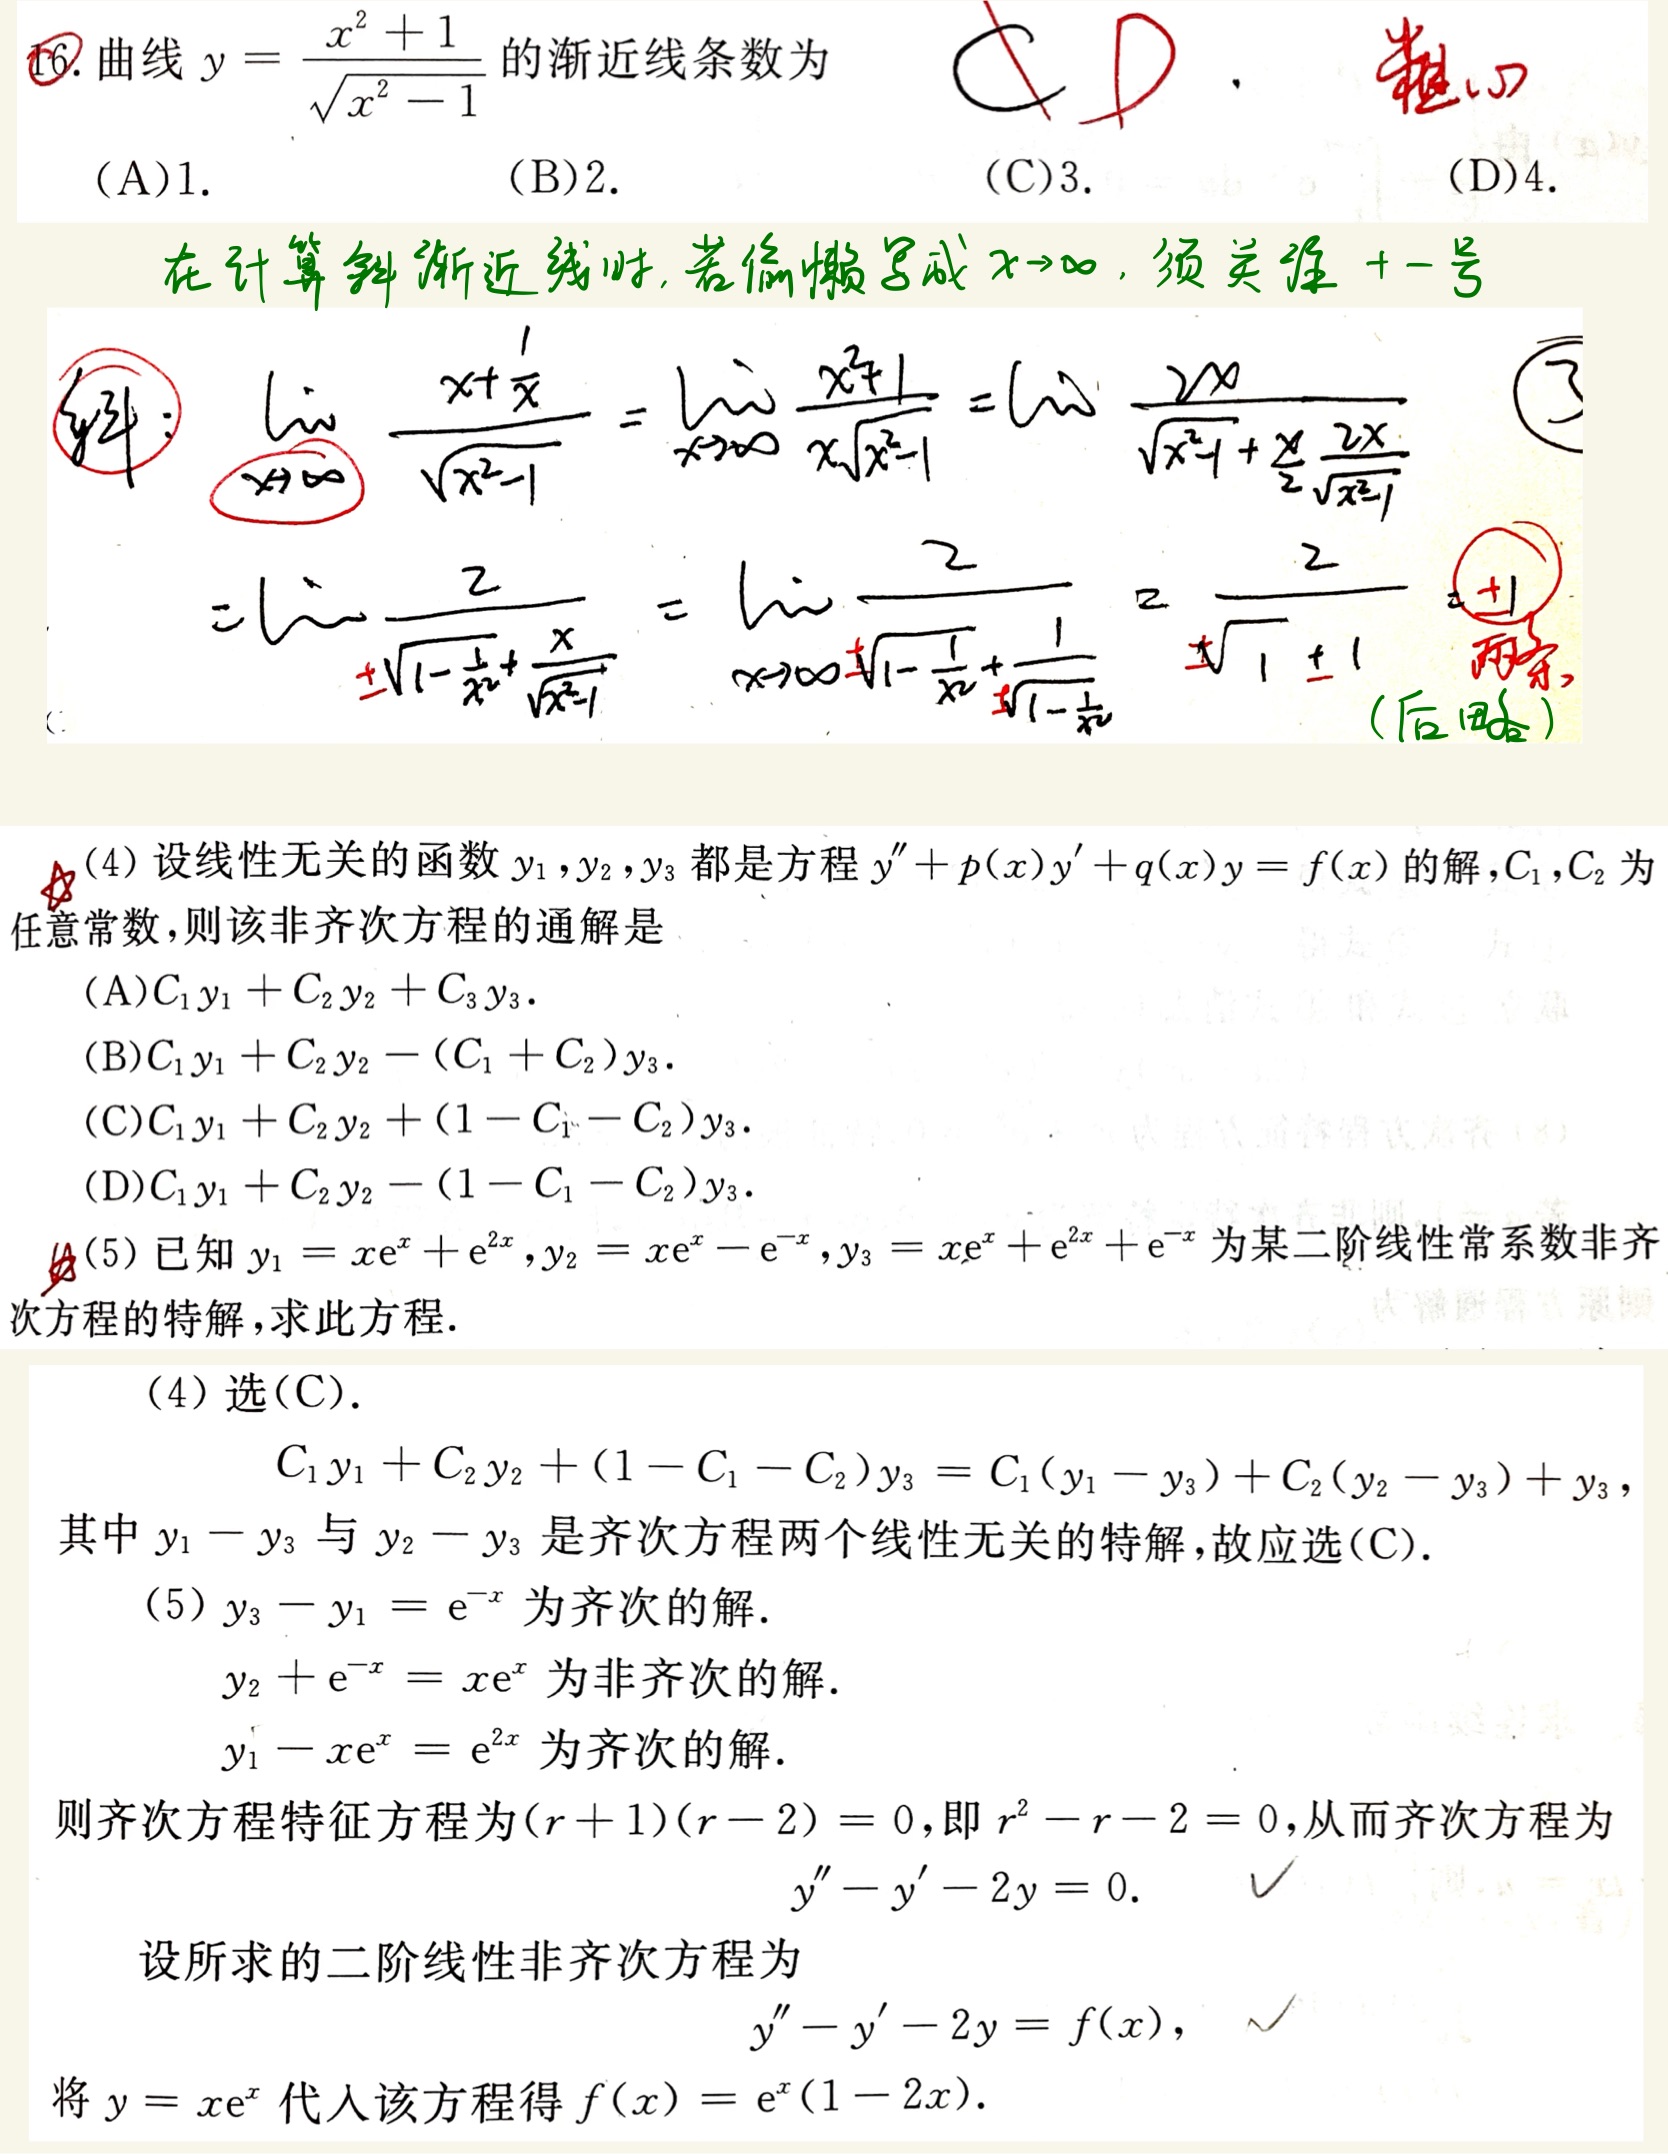 16. 曲线 y = \frac{x^2+1}{\sqrt{x^2-1}} 的渐近线条数为 C D . 粗心
(A)1. (B)2. (C)3. (D)4.
在计算斜渐近线时,若偷懒写成 x→∞, 须关注 + - 号
斜: \lim_{x→∞} \frac{x+\frac{1}{x}}{\sqrt{x^2-1}} = \lim_{x→∞} \frac{x^2+1}{x\sqrt{x^2-1}} = \lim \frac{2x}{\sqrt{x^2-1}+\frac{x}{2}\frac{2x}{\sqrt{x^2-1}}} ③
= \lim \frac{2}{±\sqrt{1-\frac{1}{x^2}}+\frac{x}{\sqrt{x^2-1}}} = \lim_{x→∞} \frac{2}{±\sqrt{1-\frac{1}{x^2}}+\frac{1}{±\sqrt{1-\frac{1}{x^2}}}} = \frac{2}{±\sqrt{1}±1} = ±1
两条,
(后略)
(4) 设线性无关的函数 y₁,y₂,y₃ 都是方程 y″+p(x)y′+q(x)y = f(x) 的解,C₁,C₂ 为
任意常数,则该非齐次方程的通解是
(A)C₁y₁+C₂y₂+C₃y₃.
(B)C₁y₁+C₂y₂-(C₁+C₂)y₃.
(C)C₁y₁+C₂y₂+(1-C₁-C₂)y₃.
(D)C₁y₁+C₂y₂-(1-C₁-C₂)y₃.
(5) 已知 y₁ = xeˣ+e²ˣ,y₂ = xeˣ-e⁻ˣ,y₃ = xeˣ+e²ˣ+e⁻ˣ 为某二阶线性常系数非齐
次方程的特解,求此方程.
(4) 选(C).
C₁y₁+C₂y₂+(1-C₁-C₂)y₃ = C₁(y₁-y₃)+C₂(y₂-y₃)+y₃,
其中 y₁-y₃ 与 y₂-y₃ 是齐次方程两个线性无关的特解,故应选(C).
(5) y₃-y₁ = e⁻ˣ 为齐次的解.
y₂+e⁻ˣ = xeˣ 为非齐次的解.
y₁-xeˣ = e²ˣ 为齐次的解.
则齐次方程特征方程为(r+1)(r-2) = 0,即 r²-r-2 = 0,从而齐次方程为
y″-y′-2y = 0. ✓
设所求的二阶线性非齐次方程为
y″-y′-2y = f(x), ✓
将 y = xeˣ 代入该方程得 f(x) = eˣ(1-2x).